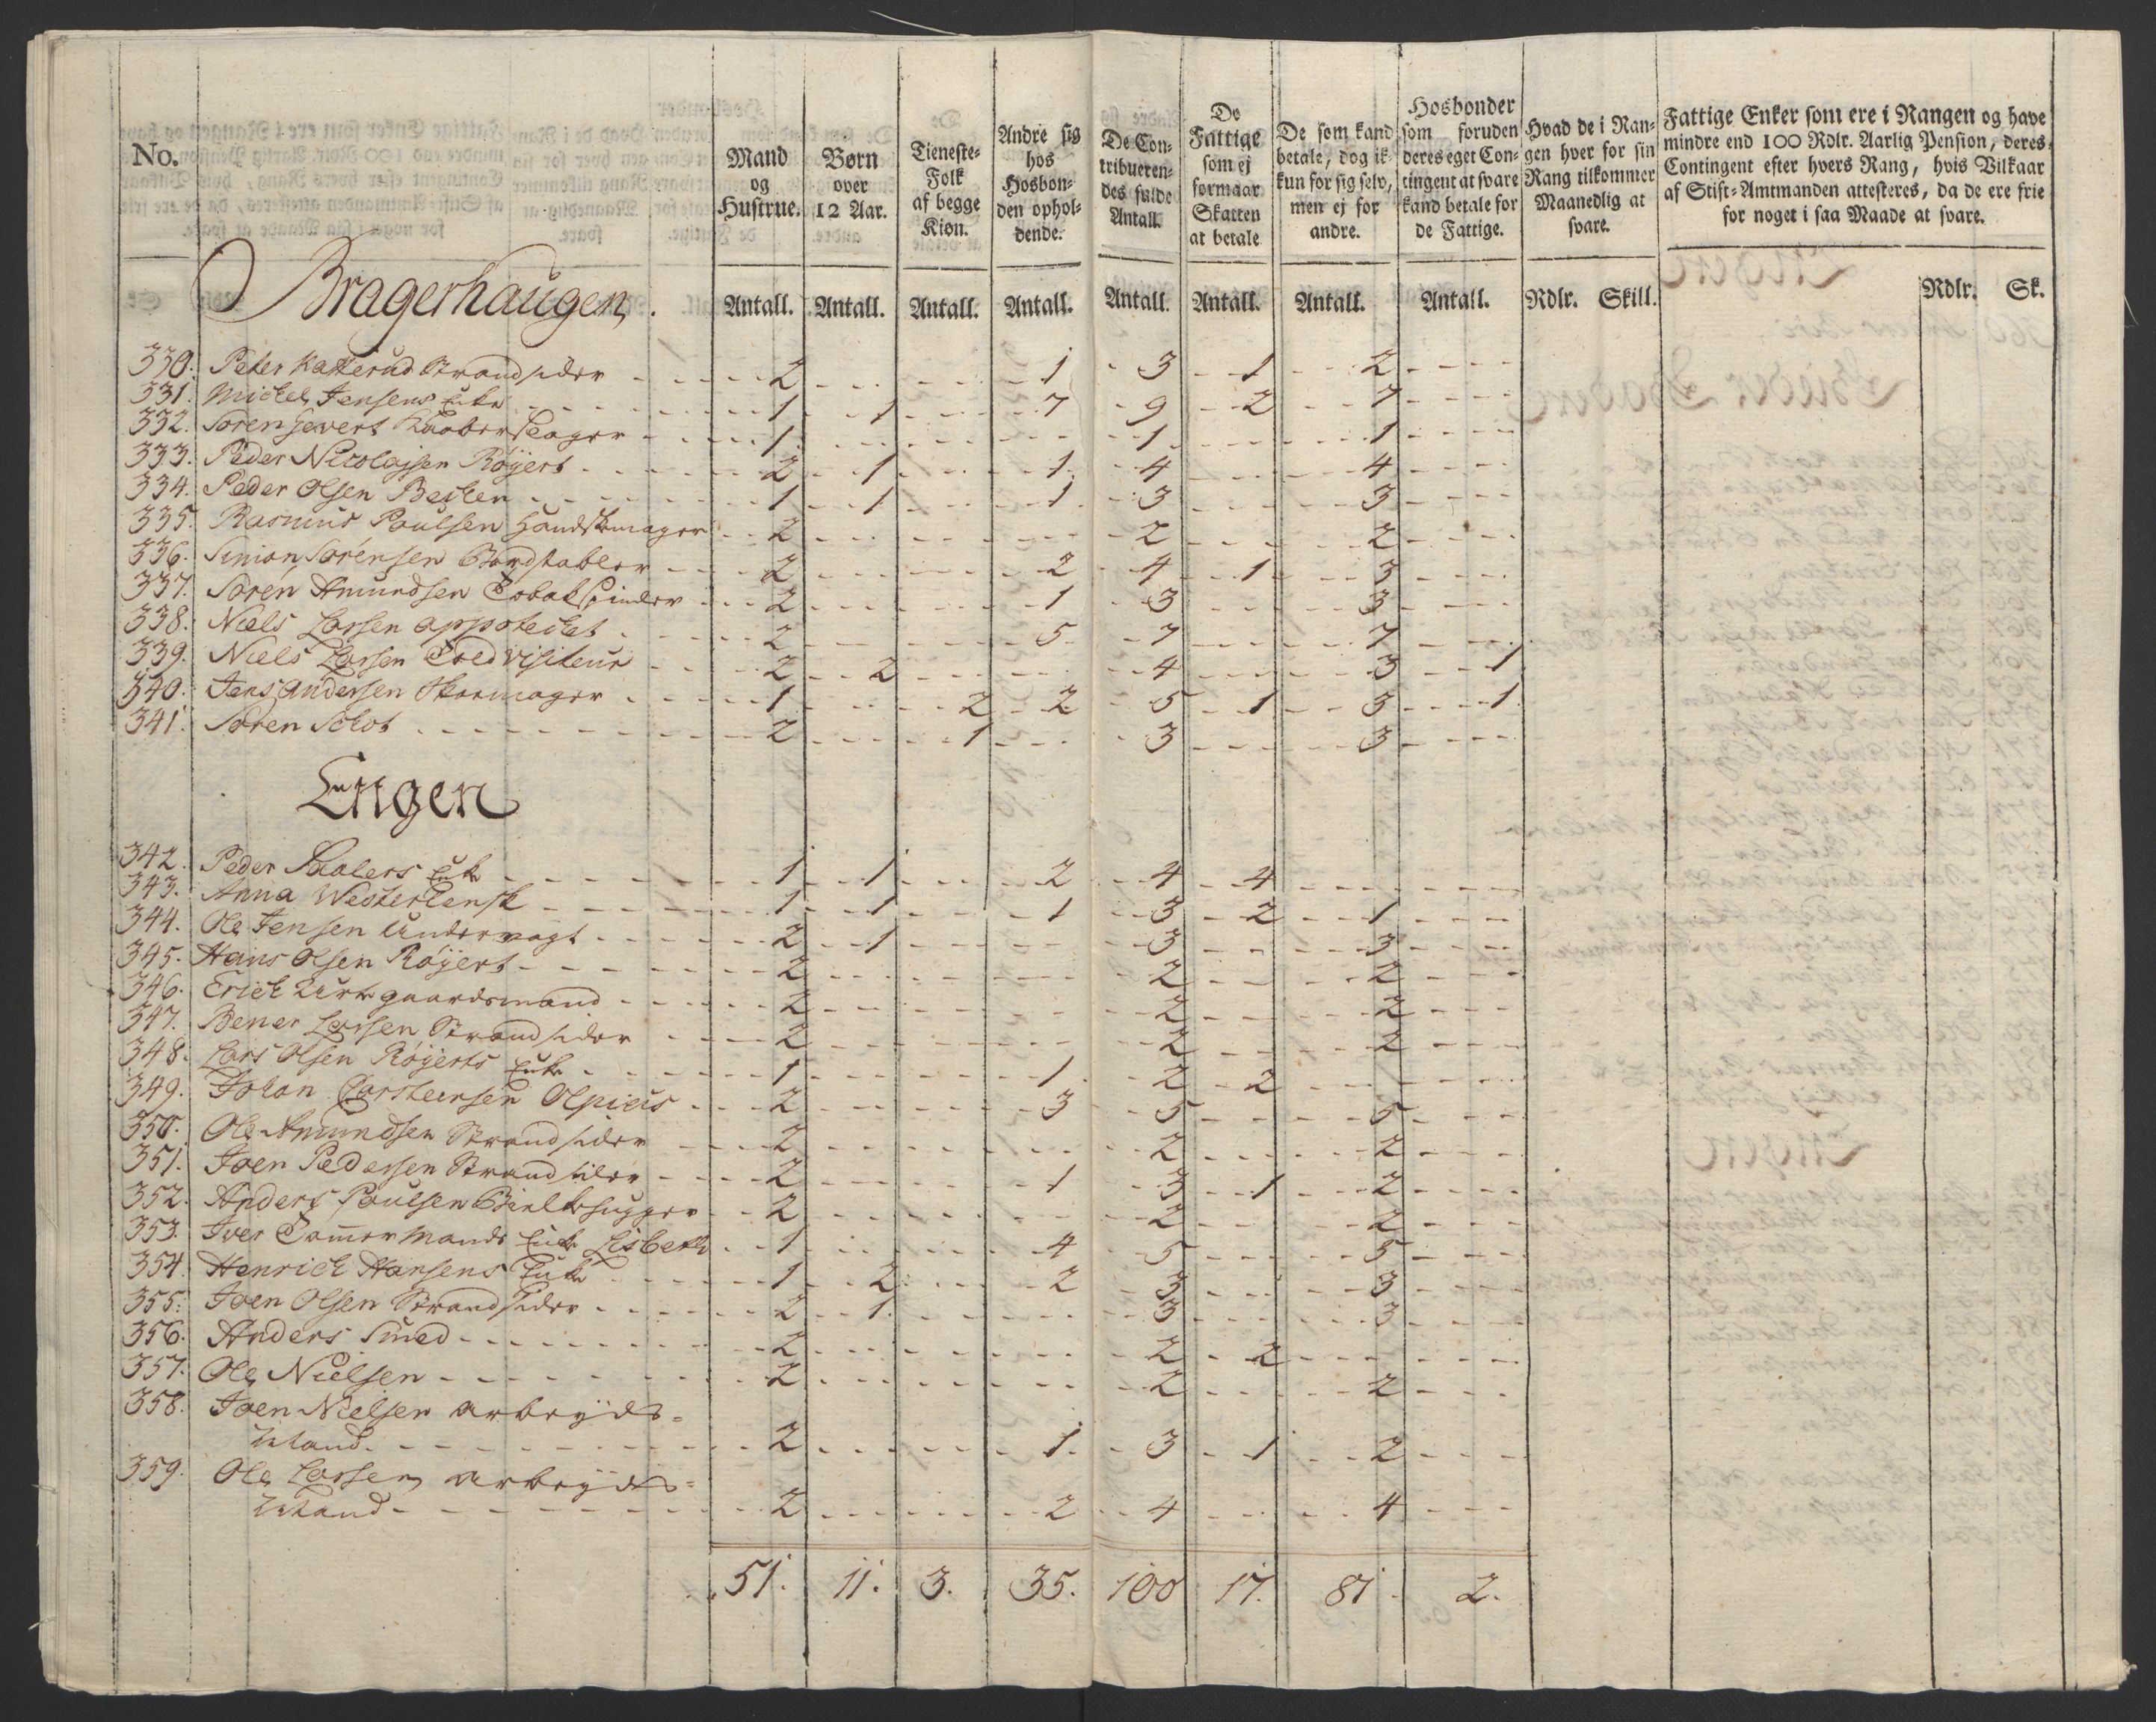 No.
Mand og Hustrue.
Børn over 12 Aar.
Tieneste-Folk af begge Kiøn.
Andre sig hos Hosbonden ophol-dende.
De Con-tribueren-des fulde Antall.
De Fattige som ej formaar Skatten at betale
De som kand betale, dog ik-kun for sig selv, men ej for andre.
Hosbonder som foruden deres eget Con-tingent at svare kand betale for de Fattige.
Hvad de i Ran-gen hver for sin Rang tilkommer Maanedlig at svare.
Fattige Enker som ere i Rangen og have mindre end 100 Rdlr. Aarlig Pension, deres Contingent efter hvers Rang, hvis Vilkaar af Stift-Amtmanden attesteres, da de ere frie for noget i saa Maade at svare.
Bragerhaugen.
Antall. Antall. Antall. Antall. Antall. Antall. Antall. Antall. Rdlr. Skill. Rdlr. Sk.
330. Peter Katterud Strandsider 2 1 3 1 2
331. Michel Jensens Enke 1 1 7 9 2 7
332. Søren Gevert 1 1 1
333. Peder Nicolajsen Røyert 2 1 1 4 4
334. Peder Olsen Becken 1 1 1 3 3
335. Rasmus Poulsen Handskemager 2 2 2
336. Simon Sørensen Bordstabler 2 2 4 1 3
337. Søren Amundsen Tobakspinder 2 1 3 3
338. Niels Larsen appotecket 2 5 7 7
339. Niels Larsen Toldvisiteur 2 2 4 3 1
340. Jens Andersen Skoemager 1 2 2 5 1 3 1
341. Søren Schot 2 1 3 3
Engen
342. Peder Enke 1 1 2 4 4
343. Anna Westerlensk 1 1 1 3 2 1
344. Ole Jensen Undervagt 2 1 3 3
345. Hans Olsen Røyert 2 2 2
346. Erich Urtegaardsmand 2 2 2
347. Bener Larsen Strandsider 2 2 2
348. Lars Olsen Røyerts Enke 1 1 2 2
349. Johan Carstensen Olpius 2 3 5 5
350. Ole Amundsen Strandsider 2 2 2
351. Joen Pedersen Strandsider 2 1 3 1 2
352. Anders Poulsen Bielkehugger 2 2 2
353. Iver Tømmermands Enke Lisbeth 1 4 5 5
354. Henrich Hansens Enke 1 2 2 3 3
355. Joen Olsen Strandsider 2 1 3 3
356. Anders Smed 2 2 2
357. Ole Nielsen 2 2 2
358. Joen Nielsen arbeyds=
Mand 2 1 3 1 2
359. Ole Larsen arbeyds=
Mand 2 2 4 4
51. 11. 3. 35. 100 17. 81. 2.